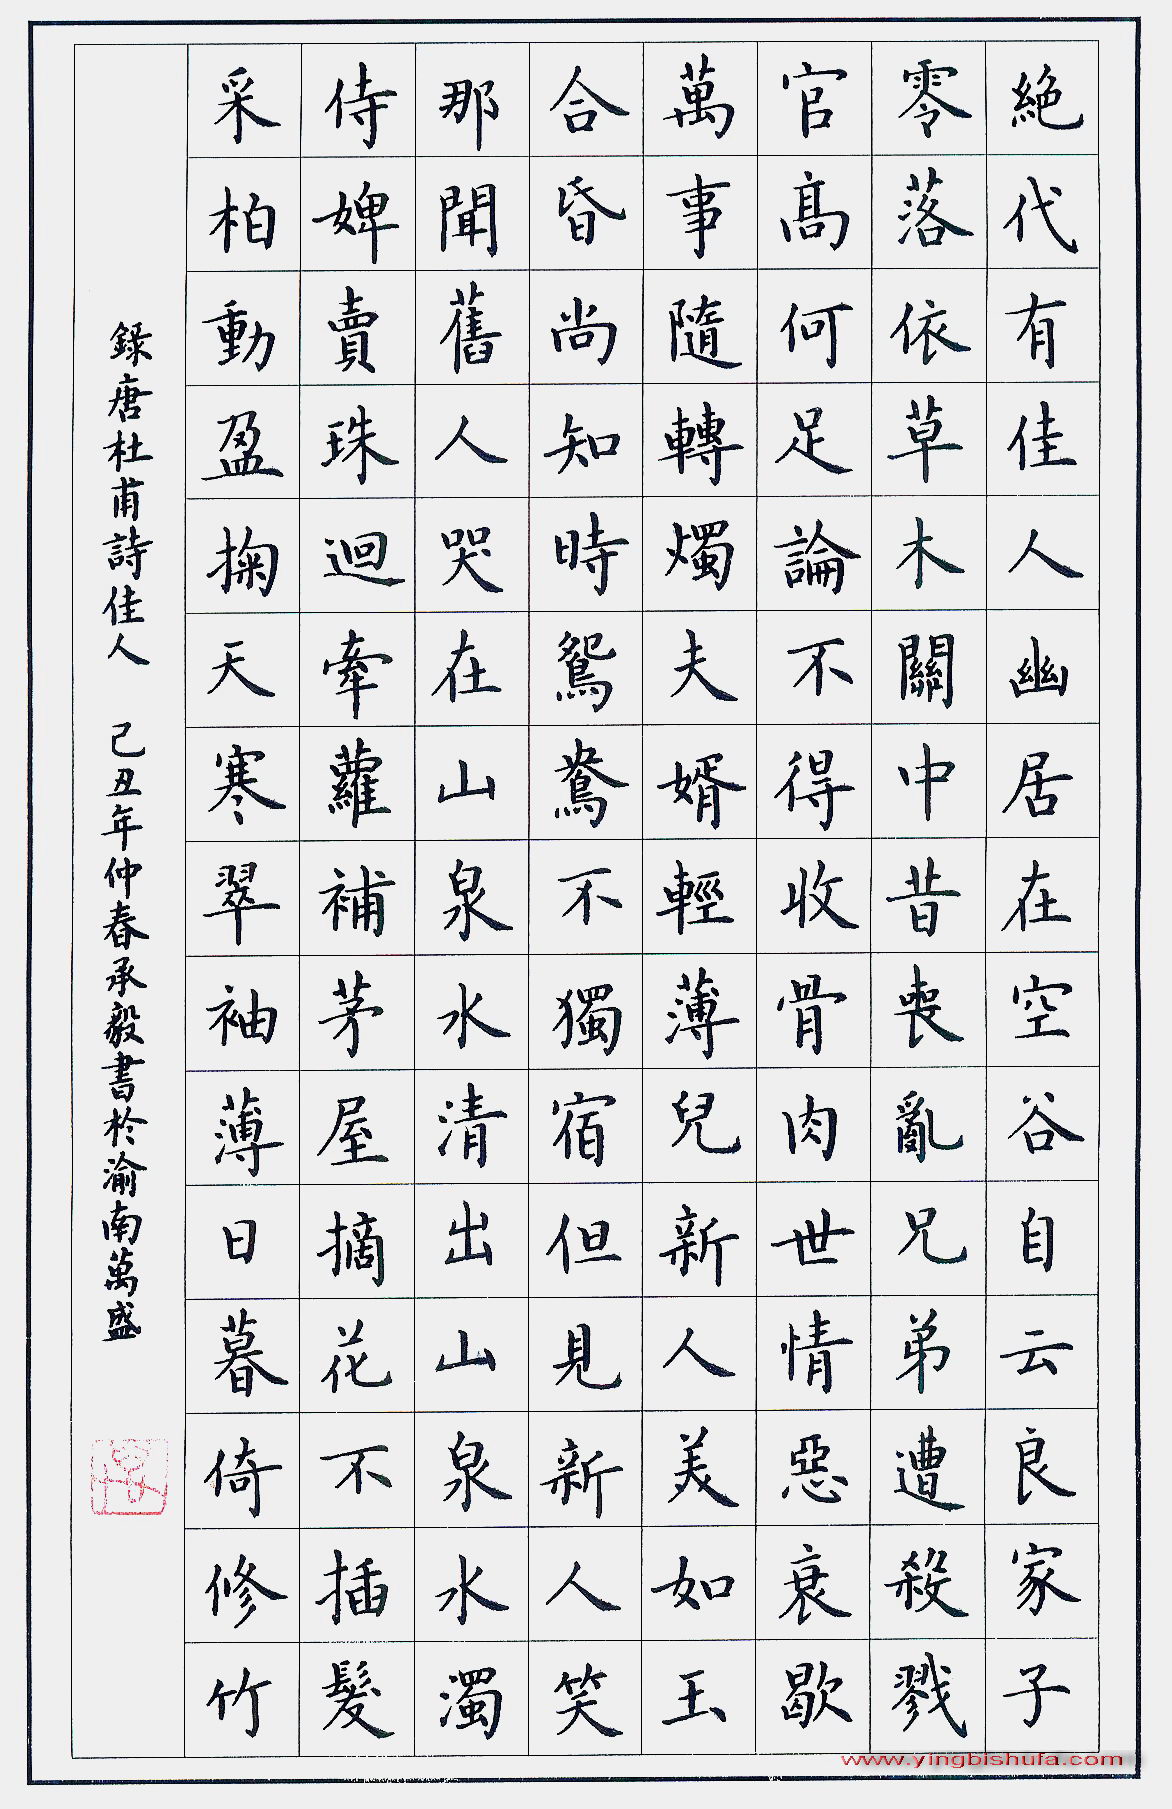 絕代有佳人幽居在空谷自云良家子
零落依草木關中昔喪亂兄弟遭殺戮
官高何足論不得收骨肉世情惡衰歇
萬事隨轉燭夫婿輕薄兒新人美如玉
合昏尚知時鴛鴦不獨宿但見新人笑
那聞舊人哭在山泉水清出山泉水濁
侍婢賣珠迴牽蘿補茅屋摘花不插髮
采柏動盈掬天寒翠袖薄日暮倚修竹
錄唐杜甫詩佳人 己丑年仲春承毅書於渝南萬盛
www.yingbishufa.com